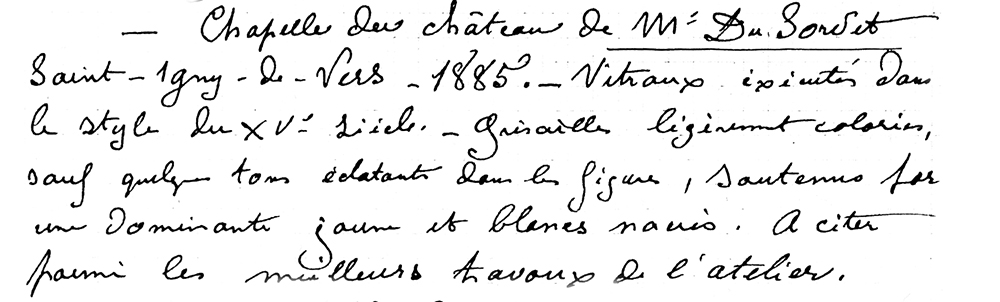 — Chapelle du château de Mr Du Sordet
Saint-Igny-de-Vers - 1885. — Vitraux exécutés dans
le style du XVe siècle. - Grisailles légèrement colories,
sauf quelques tons éclatants dans les figures, soutenus par
une dominante jaune et blancs nacrés. A citer
parmi les meilleurs travaux de l'atelier.